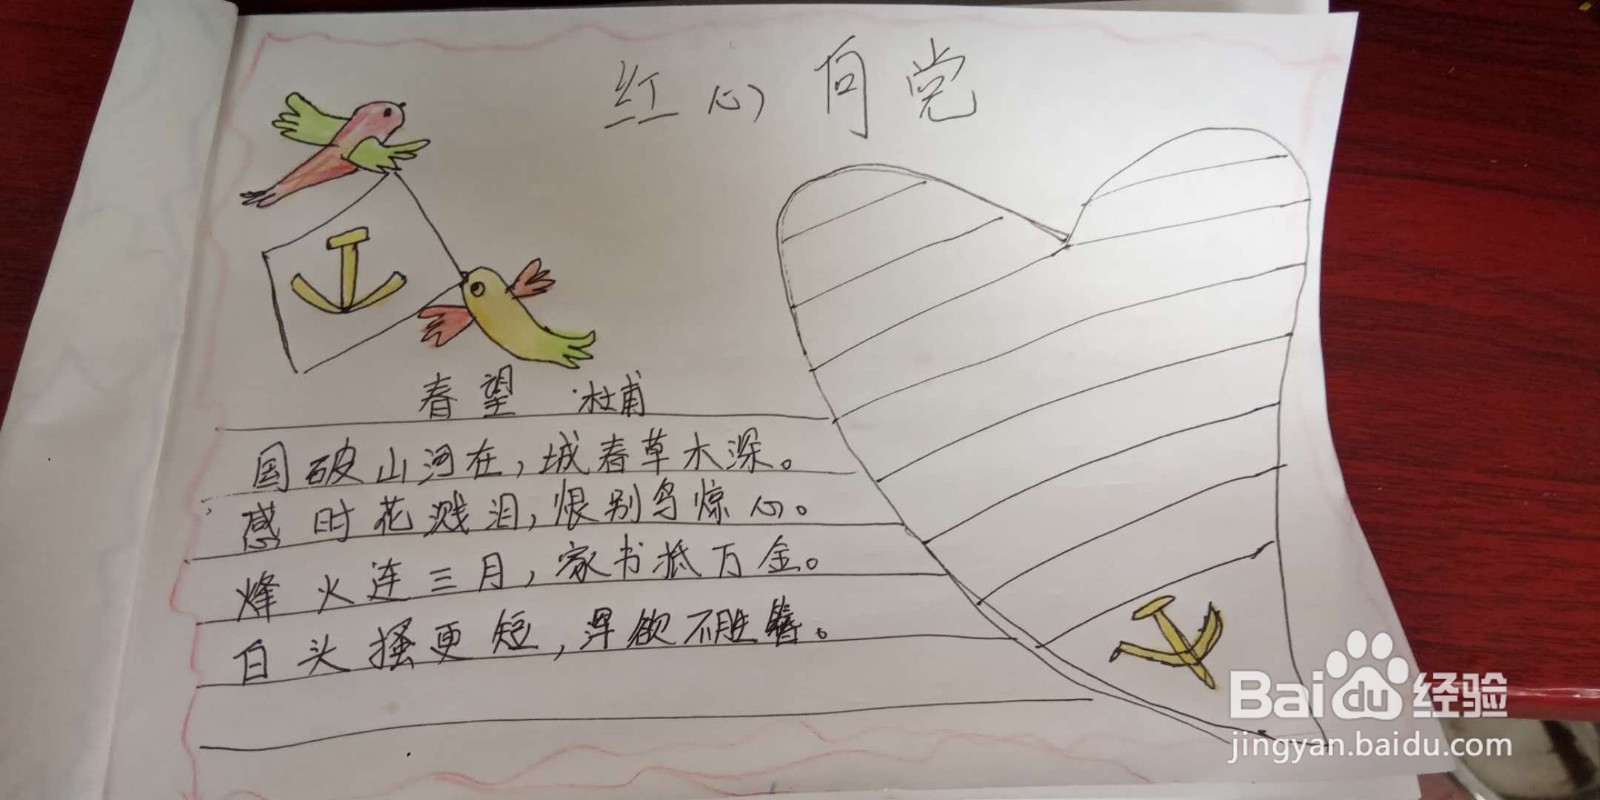 红心向党
春望 杜甫
国破山河在，城春草木深。
感时花溅泪，恨别鸟惊心。
烽火连三月，家书抵万金。
白头搔更短，浑欲不胜簪。
Baidu经验
jingyan.baidu.com